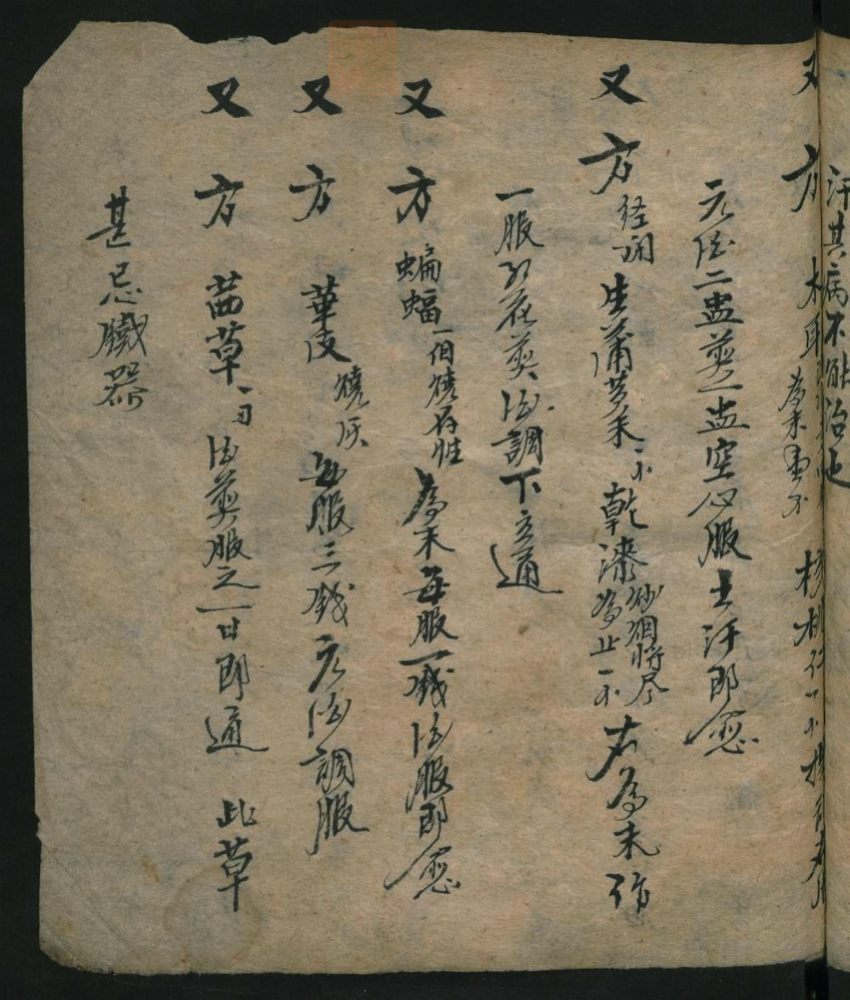 汗其病不能治也
又方 木耳 為末 核桃仁一
元酒二盅煎一盅空心服出汗即愈
又方 经闭 生蒲黄末一小 乾漆 炒烟将尽為止一小 右為末作
一服红花煎酒調下立通
又方 蝙蝠 一個燒存性 為末每服一錢酒服即愈
又方 華皮 燒灰 每服三錢元酒調服
又方 茜草一 酒煎服之一日即通 此草
甚忌鐵器